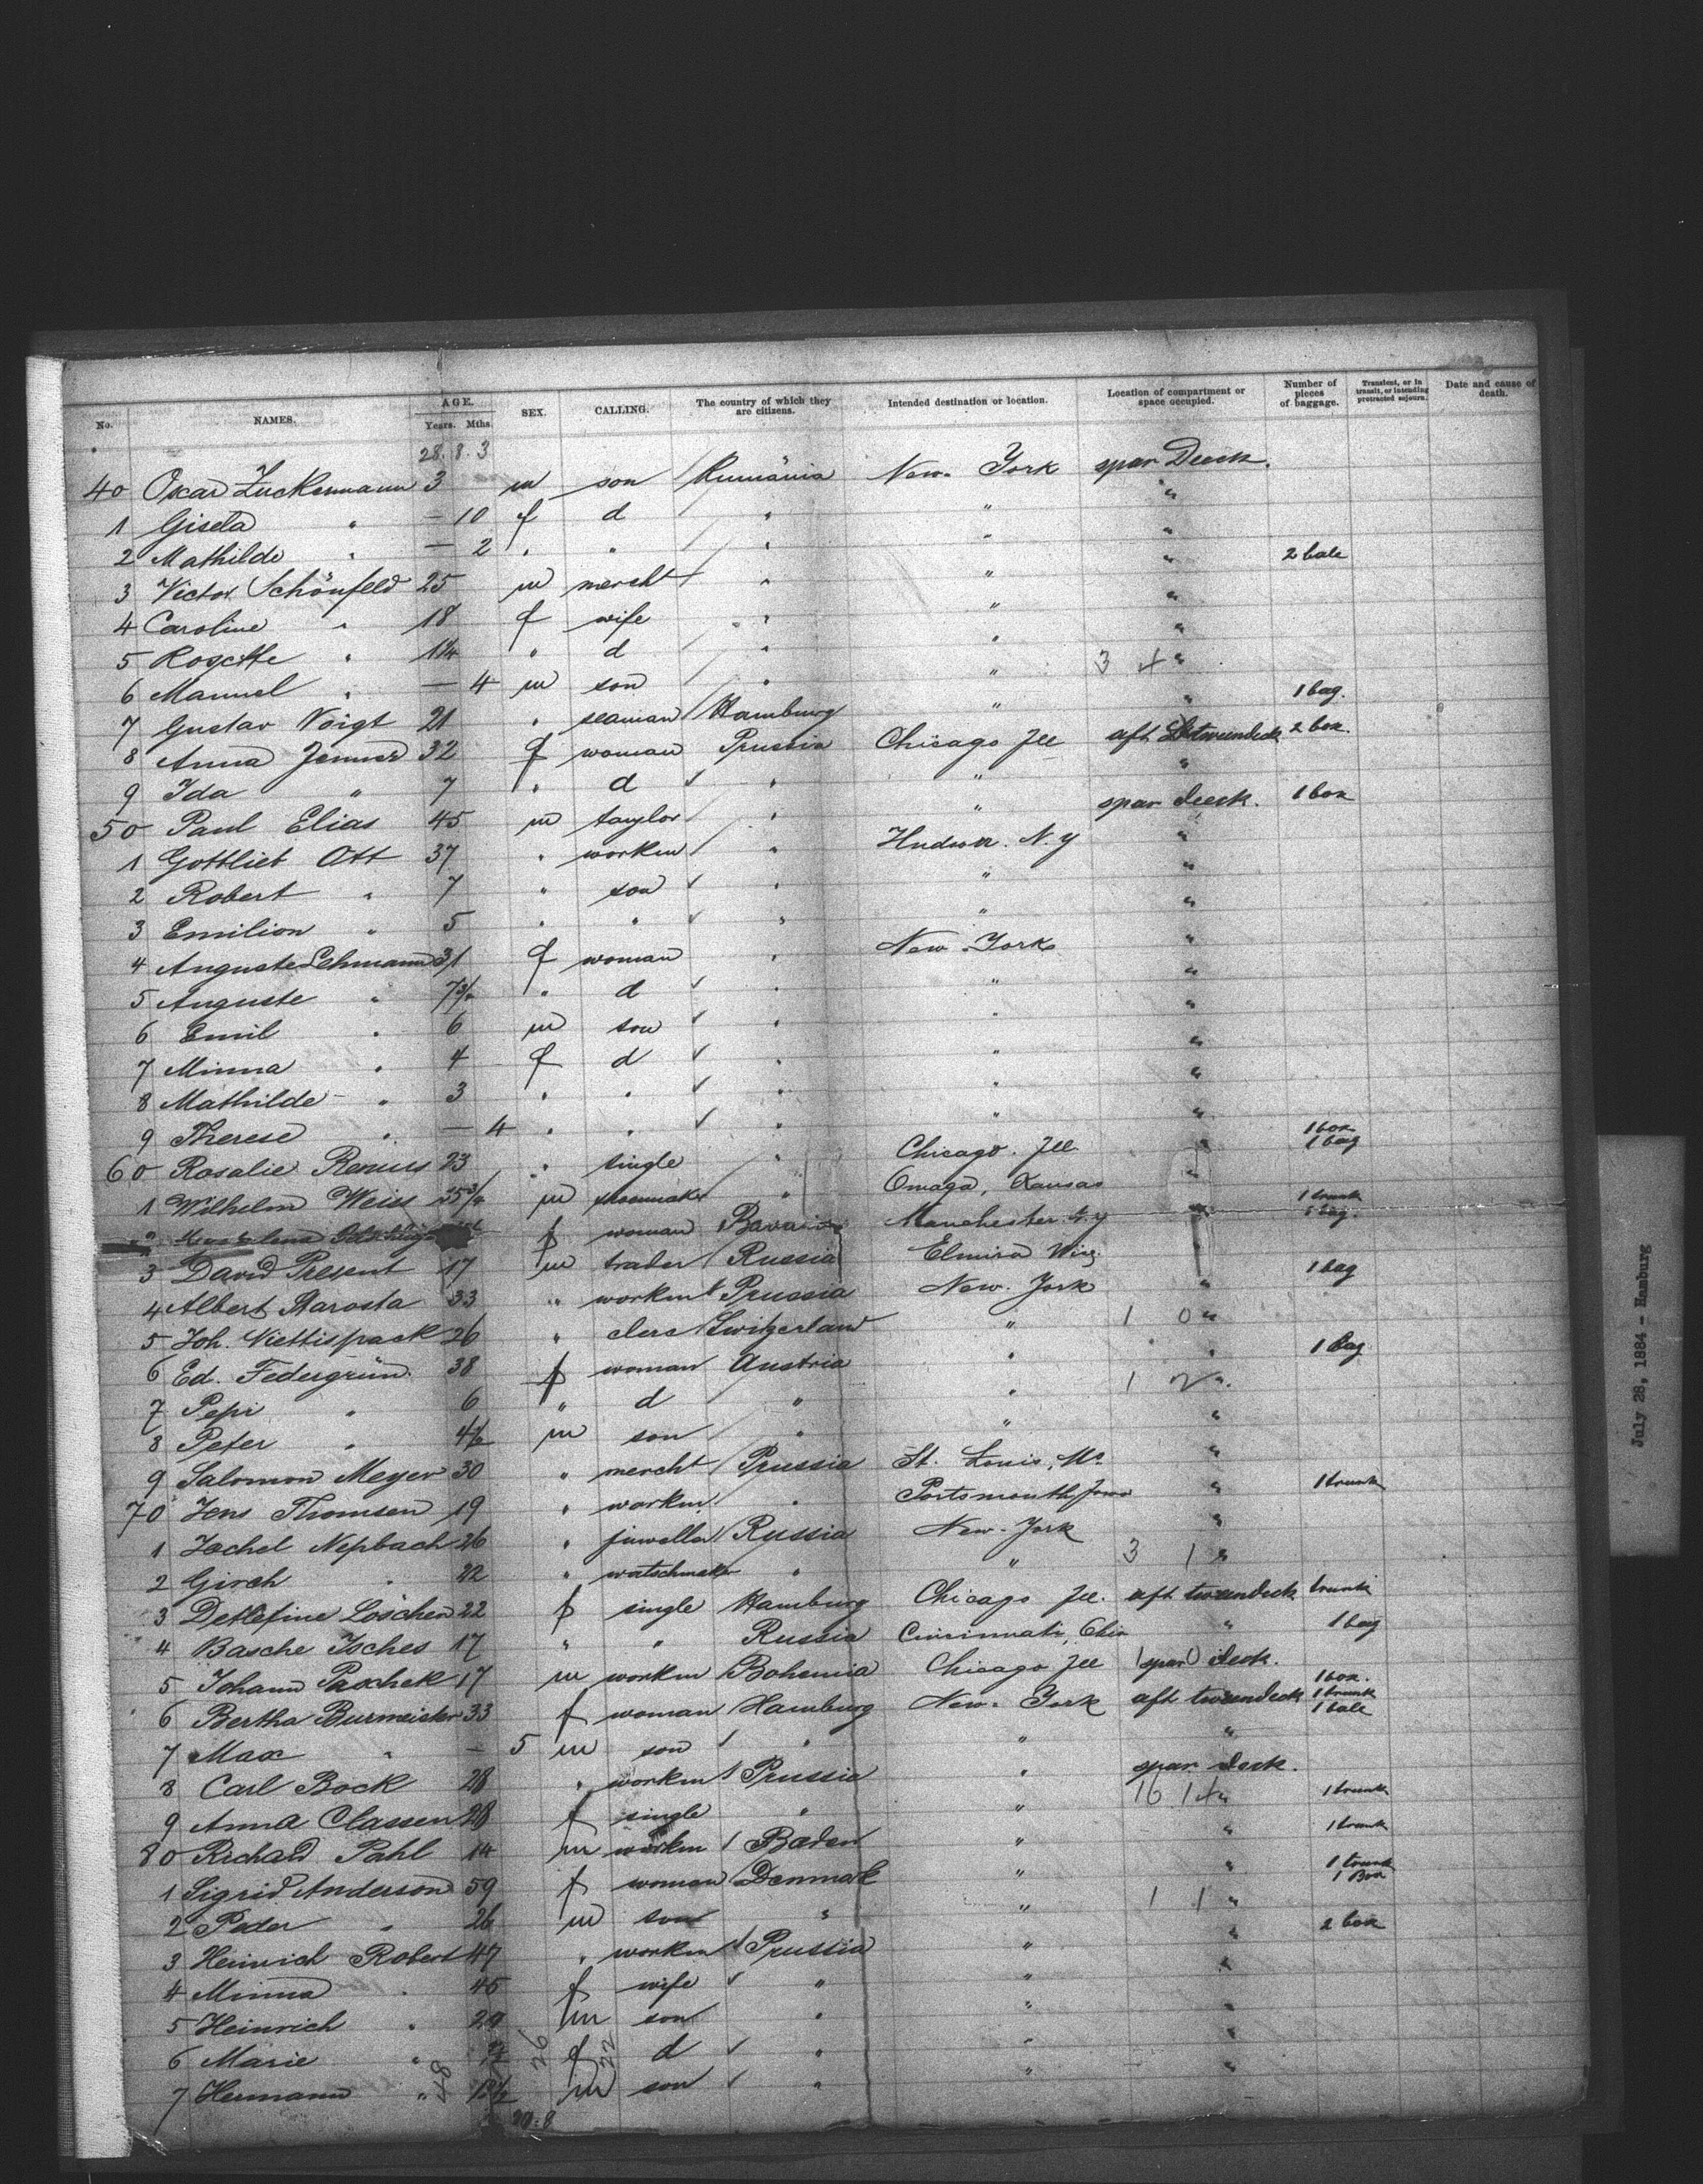 No. NAMES. AGE. Years. Mths. SEX. CALLING. The country of which they are citizens. Intended destination or location. Location of compartment or space occupied. Number of pieces of baggage. Transient, or in transit, or intending protracted sojourn. Date and cause of death.
28. 8. 3
40 Oscar Zuckermann 3 m son Rumänia New-York spar Deeck.
1 Gisela " — 10 f d " " "
2 Mathilde " — 2 " " " " "
3 Victor Schönfeld 25 m mercht " " " 2 bale
4 Caroline " 18 f wife " " "
5 Rosette " 1¼ " d " " "
6 Manuel " — 4 m son " " 3 4 "
7 Gustav Voigt 21 " seaman Hamburg " " 1 bag.
8 Anna Jenner 32 f woman Prussia Chicago Ill aft Betweendeck 2 box.
9 Ida " 7 " d " " "
50 Paul Elias 45 m taylor " " spar deeck. 1 box
1 Gottlieb Ott 37 " workm " Hudson. N.Y "
2 Robert " 7 " son " " "
3 Emilion " 5 " " " " "
4 Auguste Lehmann 31 f woman " New York "
5 Auguste " 7¾ " d " " "
6 Emil " 6 m son " " "
7 Minna " 4 f d " " "
8 Mathilde " 3 " " " " "
9 Therese " — 4 " " " " "
60 Rosalie Remus 23 " single " Chicago. Ill " 1 box 1 bag
1 Wilhelm Weiss m shoemaker " Omaga, Kansas "
2 f woman Bavaria Manchester N.Y " 1 trunk 1 bag.
3 David Present 17 m trader Russia Elmira Wisc "
4 Albert Starosta 33 " workm Prussia New-York " 1 bag
5 Joh. 26 " clerc Switzerland " 1 0 "
6 Ed. Federgrün 38 f woman Austria " " 1 bag
7 Pepi " 6 " d " " 1 2 "
8 Peter " 4½ m son " " "
9 Salomon Meyer 30 " mercht Prussia St. Louis, Mo "
70 Jens Thomsen 19 " workm " Portsmouth, Jowa " 1 trunk
1 Jochel Nepbach 26 " juweller Russia New-York "
2 Girch " 22 " watschmaker " " 3 1 "
3 Detlefine Löschen 22 f single Hamburg Chicago Ill. aft tweendeck trunk
4 Basche Isches 17 " " Russia Cincinnati, Ohio " 1 bag
5 Johann Paschek 17 m workm Bohemia Chicago Ill spar deck.
6 Bertha Burmeister 33 f woman Hamburg New-York aft tweendeck 1 box. 1 trunk 1 bale
7 Max " — 5 m son " " "
8 Carl Bock 28 " workm Prussia " spar deck.
9 Anna Classen 28 f single " " 16 14 " 1 trunk
80 Richard Pahl 14 m workm Baden " " 1 trunk
1 Sigrid Anderson 59 f woman Denmark " " 1 trunk 1 Box
2 Peder " 26 m son " " 1 1 "
3 Heinrich Robert 47 " workm Prussia " " 2 box
4 Minna " 45 f wife " " "
5 Heinrich " m son " " "
6 Marie " f d " " "
7 Hermann " m son " " "
48 26 22
20: 8
July 28, 1884 - Hamburg